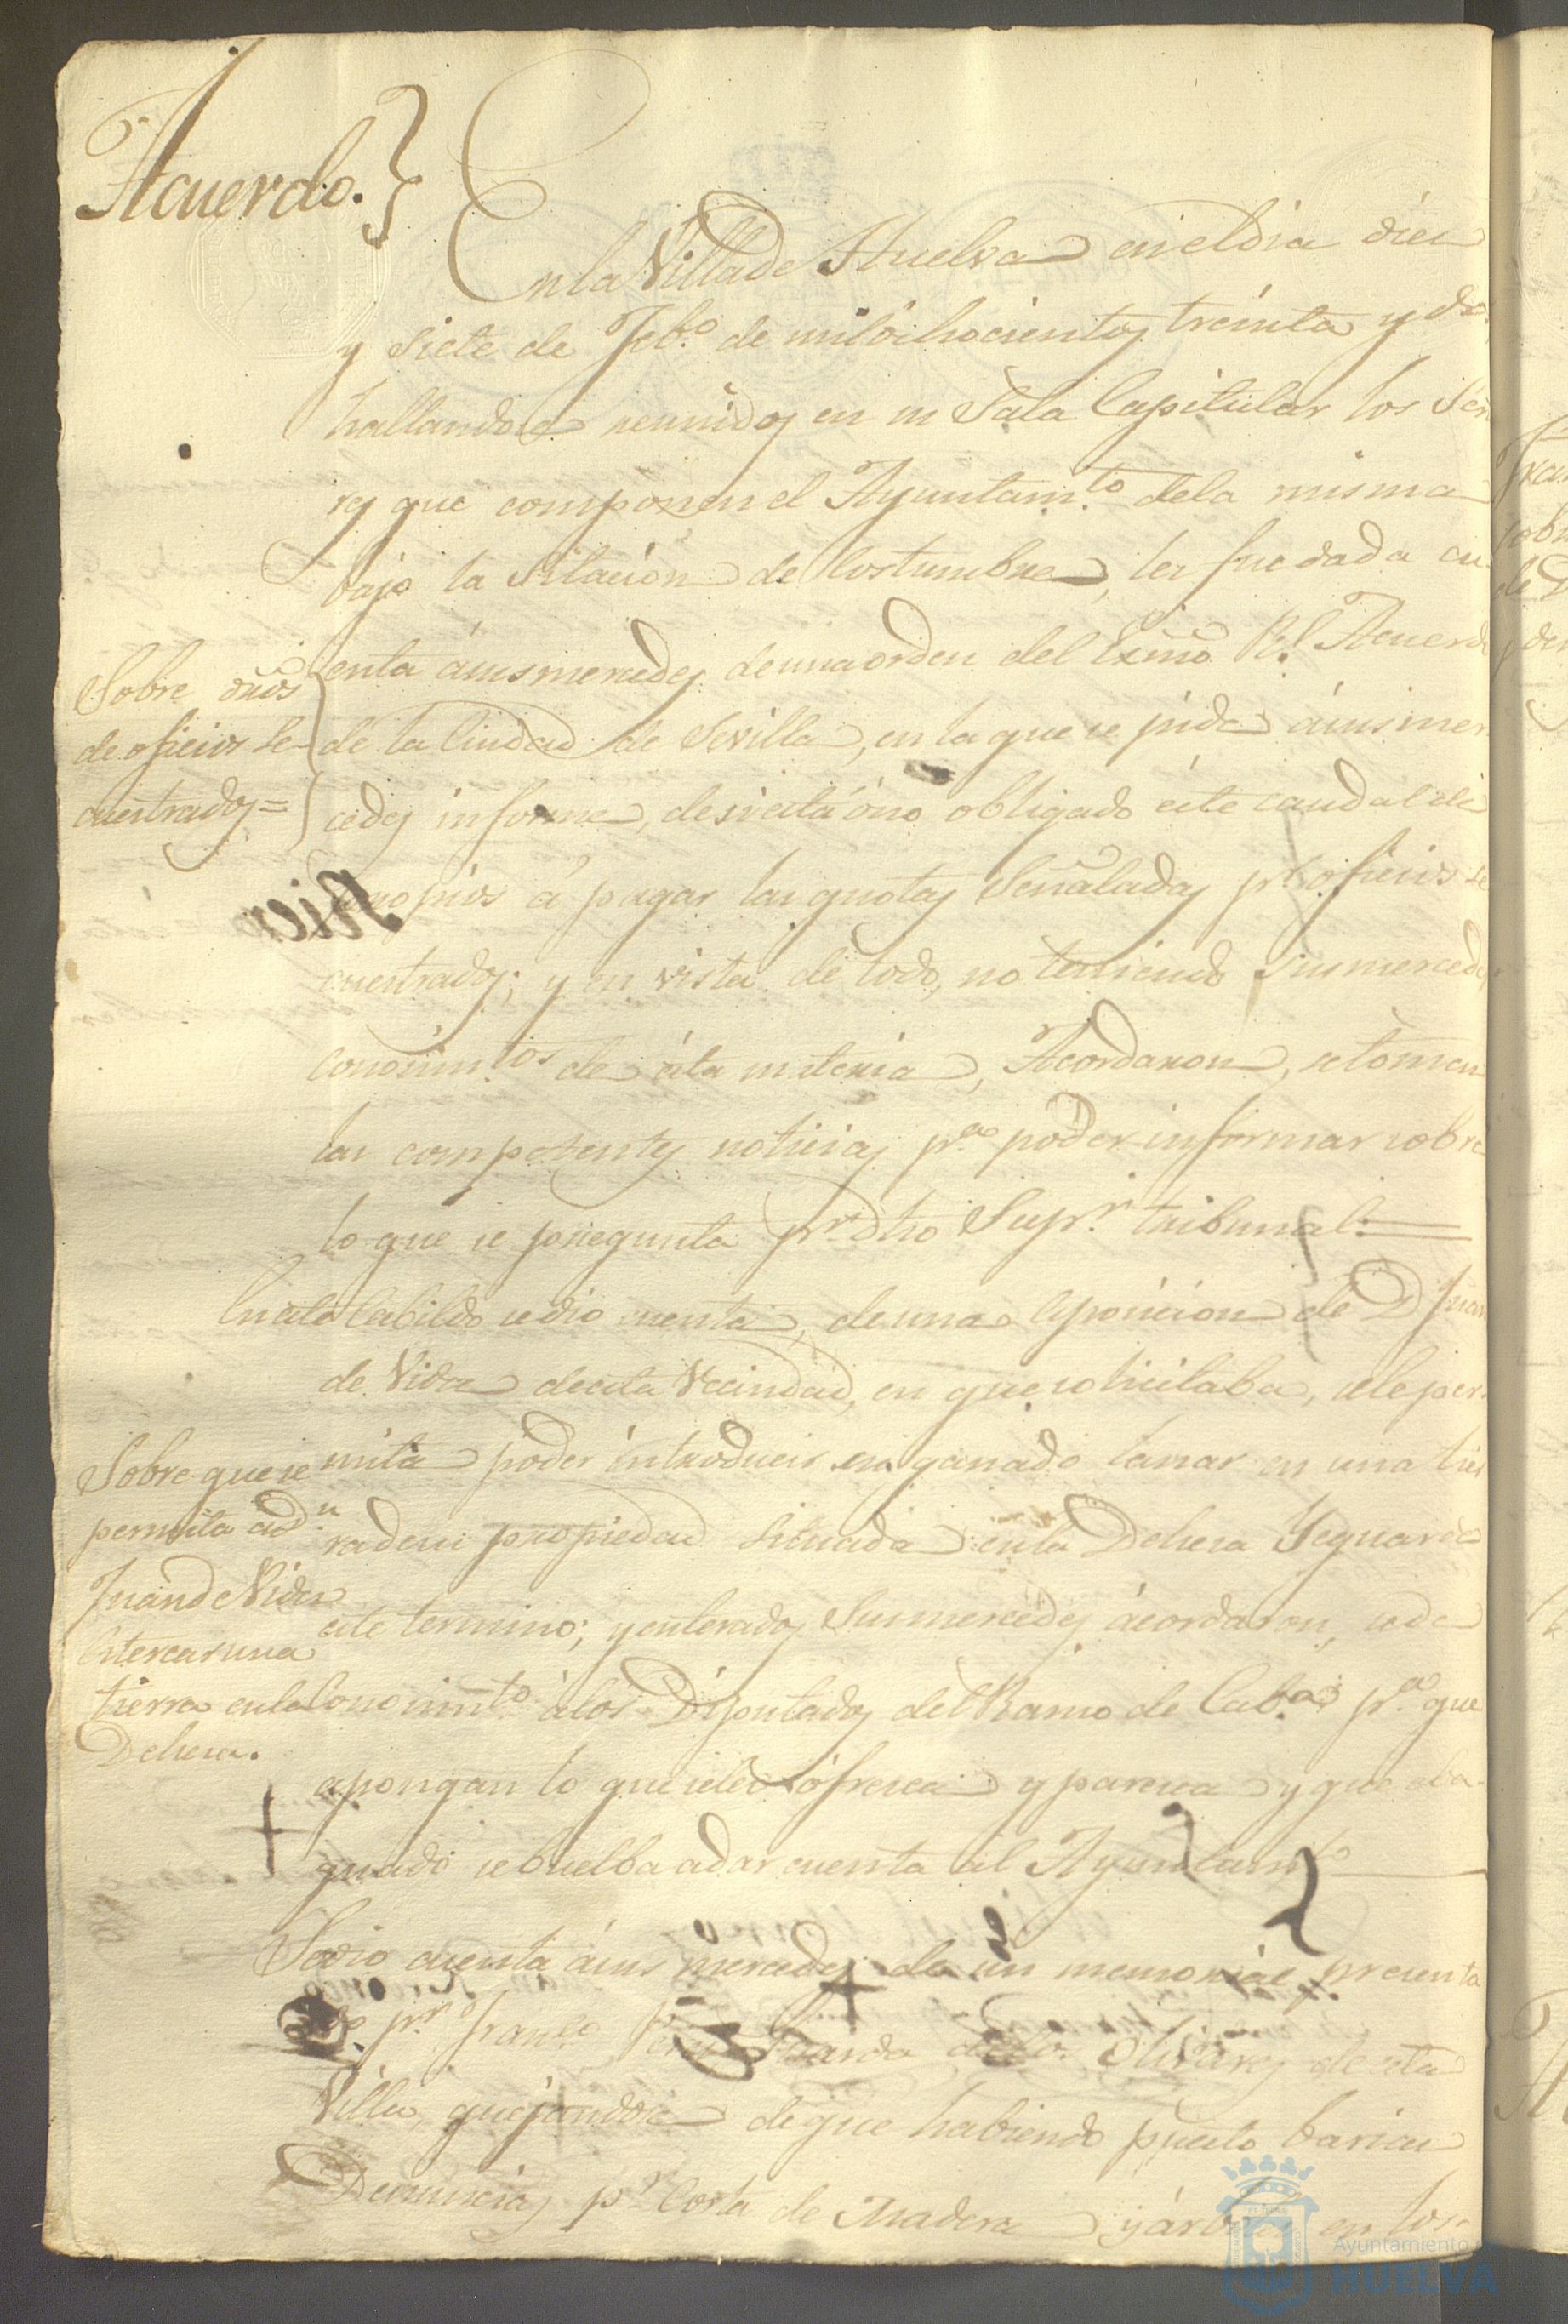 Acuerdo.}
En la Villa de Huelva en el dia diez
y siete de Feb.o de mil ochocientos treinta y dos
hallandose reunidos en su Sala Capitular los Seño
res que componen el Ayuntam.to de la misma
bajo la sitacion de costumbre, les fue dada cu
enta á sus mercedes de una orden del Exmo R.l Acuerdo
Sobre
de oficios se-
cuestrados=
de la Ciudad de Sevilla, en la que se pide á sus mer
cedes informe, de si está ó no obligado este caudal de
propios á pagar las quotas Señaladas p.r oficios se
cuestrados; y en vista de todo, no teniendo sus mercedes
conosim.tos de esta materia, Acordaron, se tomen
las competentes noticias p.a poder informar sobre
lo que se preguata p.r dho Sup.r tribunal.=
En este Cabildo se dio cuenta, de una esposicion de D Juan
de Vides de esta Vecindad, en que solicitaba, se le per-
mita poder introducir su ganado lanar en una tier
ra de su propiedad situada en la Dehesa Yeguar de
este termino; y enterados Sus mercedes acordaron, se de
conosim.to á los Diputados del Ramo de Cab.as p.a que
espongan lo que se les ofresca y paresca y que eba-
quado se buelba a dar cuenta al Ayuntam.to
Sobre que se
permita á D.n
Juan de Vides
entrar una
tierra en la
Dehesa.
Se dio cuenta á sus mercedes de un memorial presenta
do p.r Fran.co Guarda de los Olivares de esta
Villa, quejandose de que habiendo puesto barias
Denuncias p.r Corta de Madera y arboles en los
Ayuntamiento
HUELVA